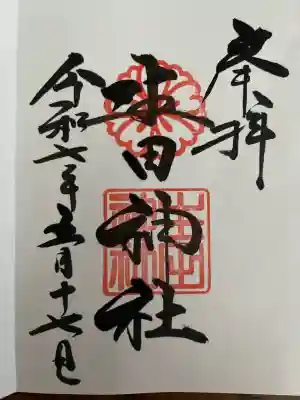 奉拝
生田神社
令和六年五月十七日